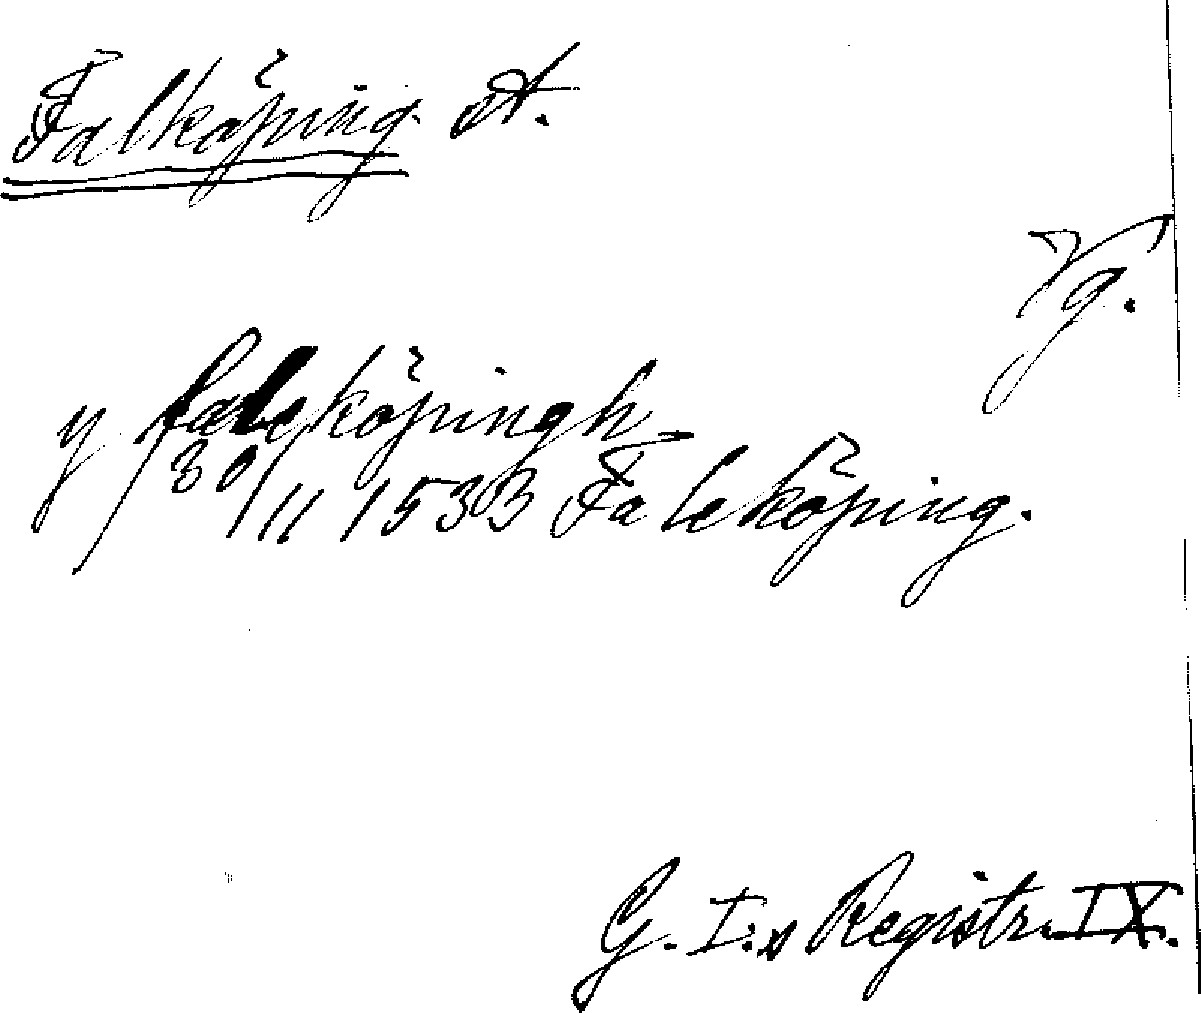 Falköping st.
Vg.
y faleköpingh
30/11 1533 Faleköping.
G. I:s Registr. IX.